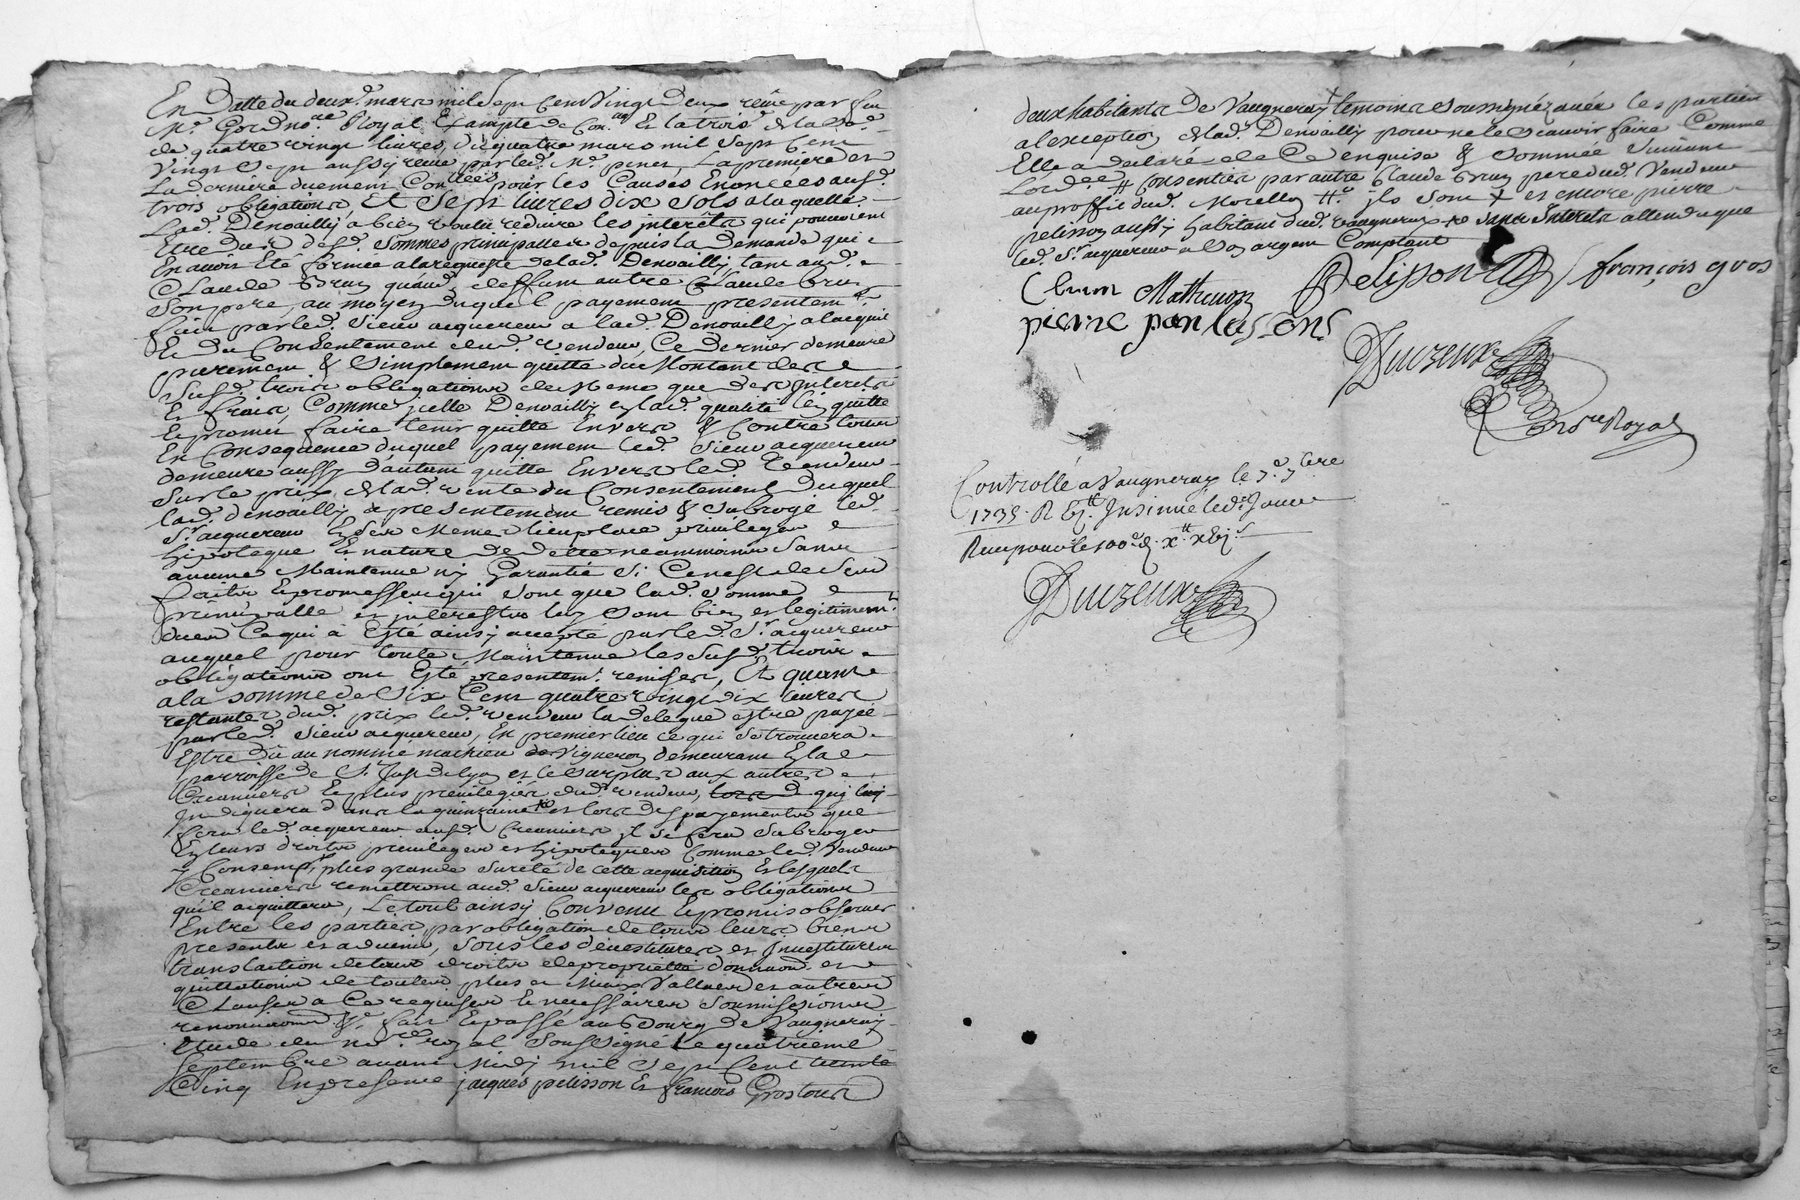 En Datte du deux.e mars mil Sept Cent Vingt deux reçüe par feu
M.e Gord no.re Royal Exampte de Con.le Et la trois.e de la So.e
de quatre vingt livres, du quatre mars mil Sept Cent
Vingt Sept aussy reçüe par led. M.e la premiere et
La derniere duement Con.lées pour les Causes Enoncées ausd.
trois obligations Et Sept livres dix Sols a laquelle
Lad. Denoailly a bien voulu reduire les jnterêts qui pouvoient
Etre dus desd. Sommes principalles depuis la Demande qui
En avoit Eté formée a la requeste de lad. Denoailly, tant aud.
Claude Brun quand deffunt autre Claude Brun
Son pere, au moyen duquel payement presentem.t
fait par led. Sieur acquereur a lad. Denoailly a lacquit
Et du Consentement dud. vendeur, Ce dernier demeure
purement & Simplement quitte du Montant des
Susd. trois obligations de Meme que des jnterets
Et frais, Comme jcelle Denoailly en lad. qualité len quitte
Et promet faire tenir quitte Envers & Contre tous
En Consequence duquel payement led. Sieur acquereur
demeure aussy d'autant quitte Envers led. Vendeur
Sur le prix de lad. vente du Consentement duquel
lad. denoailly a presentement remis & Subrogé led.
S.r acquereur En Ses Memes lieu place privileges
hipoteque Et nature de dette neammoins Sans
aucune Maintenue ny Garantie Si Ce nest de Ses
faits Et promesses qui Sont que lad. Somme
Prinçipalle et jnterests luy Sont bien et legitimem.t
dues Ce qui à Esté ainsy accepté par led. S.r acquereur
auquel pour toute Maintenue les Susd. trois
obligations ont Esté presentem.t remises, Et quant
a la somme de Six Cent quatre vingt dix livres
restantes dud. prix led. vendeur la delegue estre payée
par led. Sieur acquereur, En premier lieu ce qui Se trouvera
Estre dû au nommé mathieu de Vigneron demeurant En la
parroisse de S.t Just de lyon et le Surplus aux autres
Creanciers Et plus privilegiés dud. vendeur, lors d quj luy
Jndiquera dans la quinzaine et lors des payements que
fera led. acquereur ausd. Creanciers jl Se fera Subroger
En leurs droits privileges et hipoteques Comme led. Vendeur
y Consent, plus grande Sureté de cette acquisition Et lesquels
Creanciers remettront aud. Sieur acquereur les obligations
qu'il acquittera, Le tout ainsy Convenu Et promis observer
Entre les parties, par obligation de tous leurs biens
presents et advenir, Sous les devestitures et Jnvestitures
translation de tous droits de proprietté donnaon. et
quittations de toutes plus et Mieux Vallues et autres
Clauses a Ce requises Et necessaires Soumissions
renonciaons &.c fait Et passé au Bourg de Vaugneray
étude du no.re royal Soussigné Le quatrieme
Septembre avant Midy mil Sept Cent trente
Cinq En presence jacques pelisson Et francois Gros tous
deux habitants de Vaugneray temoins Soussignéz avec les parties
a lexception de lad. Denoailly pour ne le Scavoir faire Comme
Elle a declaré de Ce enquise & Sommée Suivant
Lord.ce # Consenties par autre Claude Brun pere dud. Vendeur
au proffit dud. Morellon #. jls Sont + et encore pierre
pelisson aussy habitant dud. vaugneray Sans Interets attendu que
led. S.r acquereur a Son argent Comptant
Mathieu
Pelisson
françois gros
pierre
Duizeux
no.re Royal
Controllé a Vaugneray le 7.e 7bre
1735. R
Duizeux